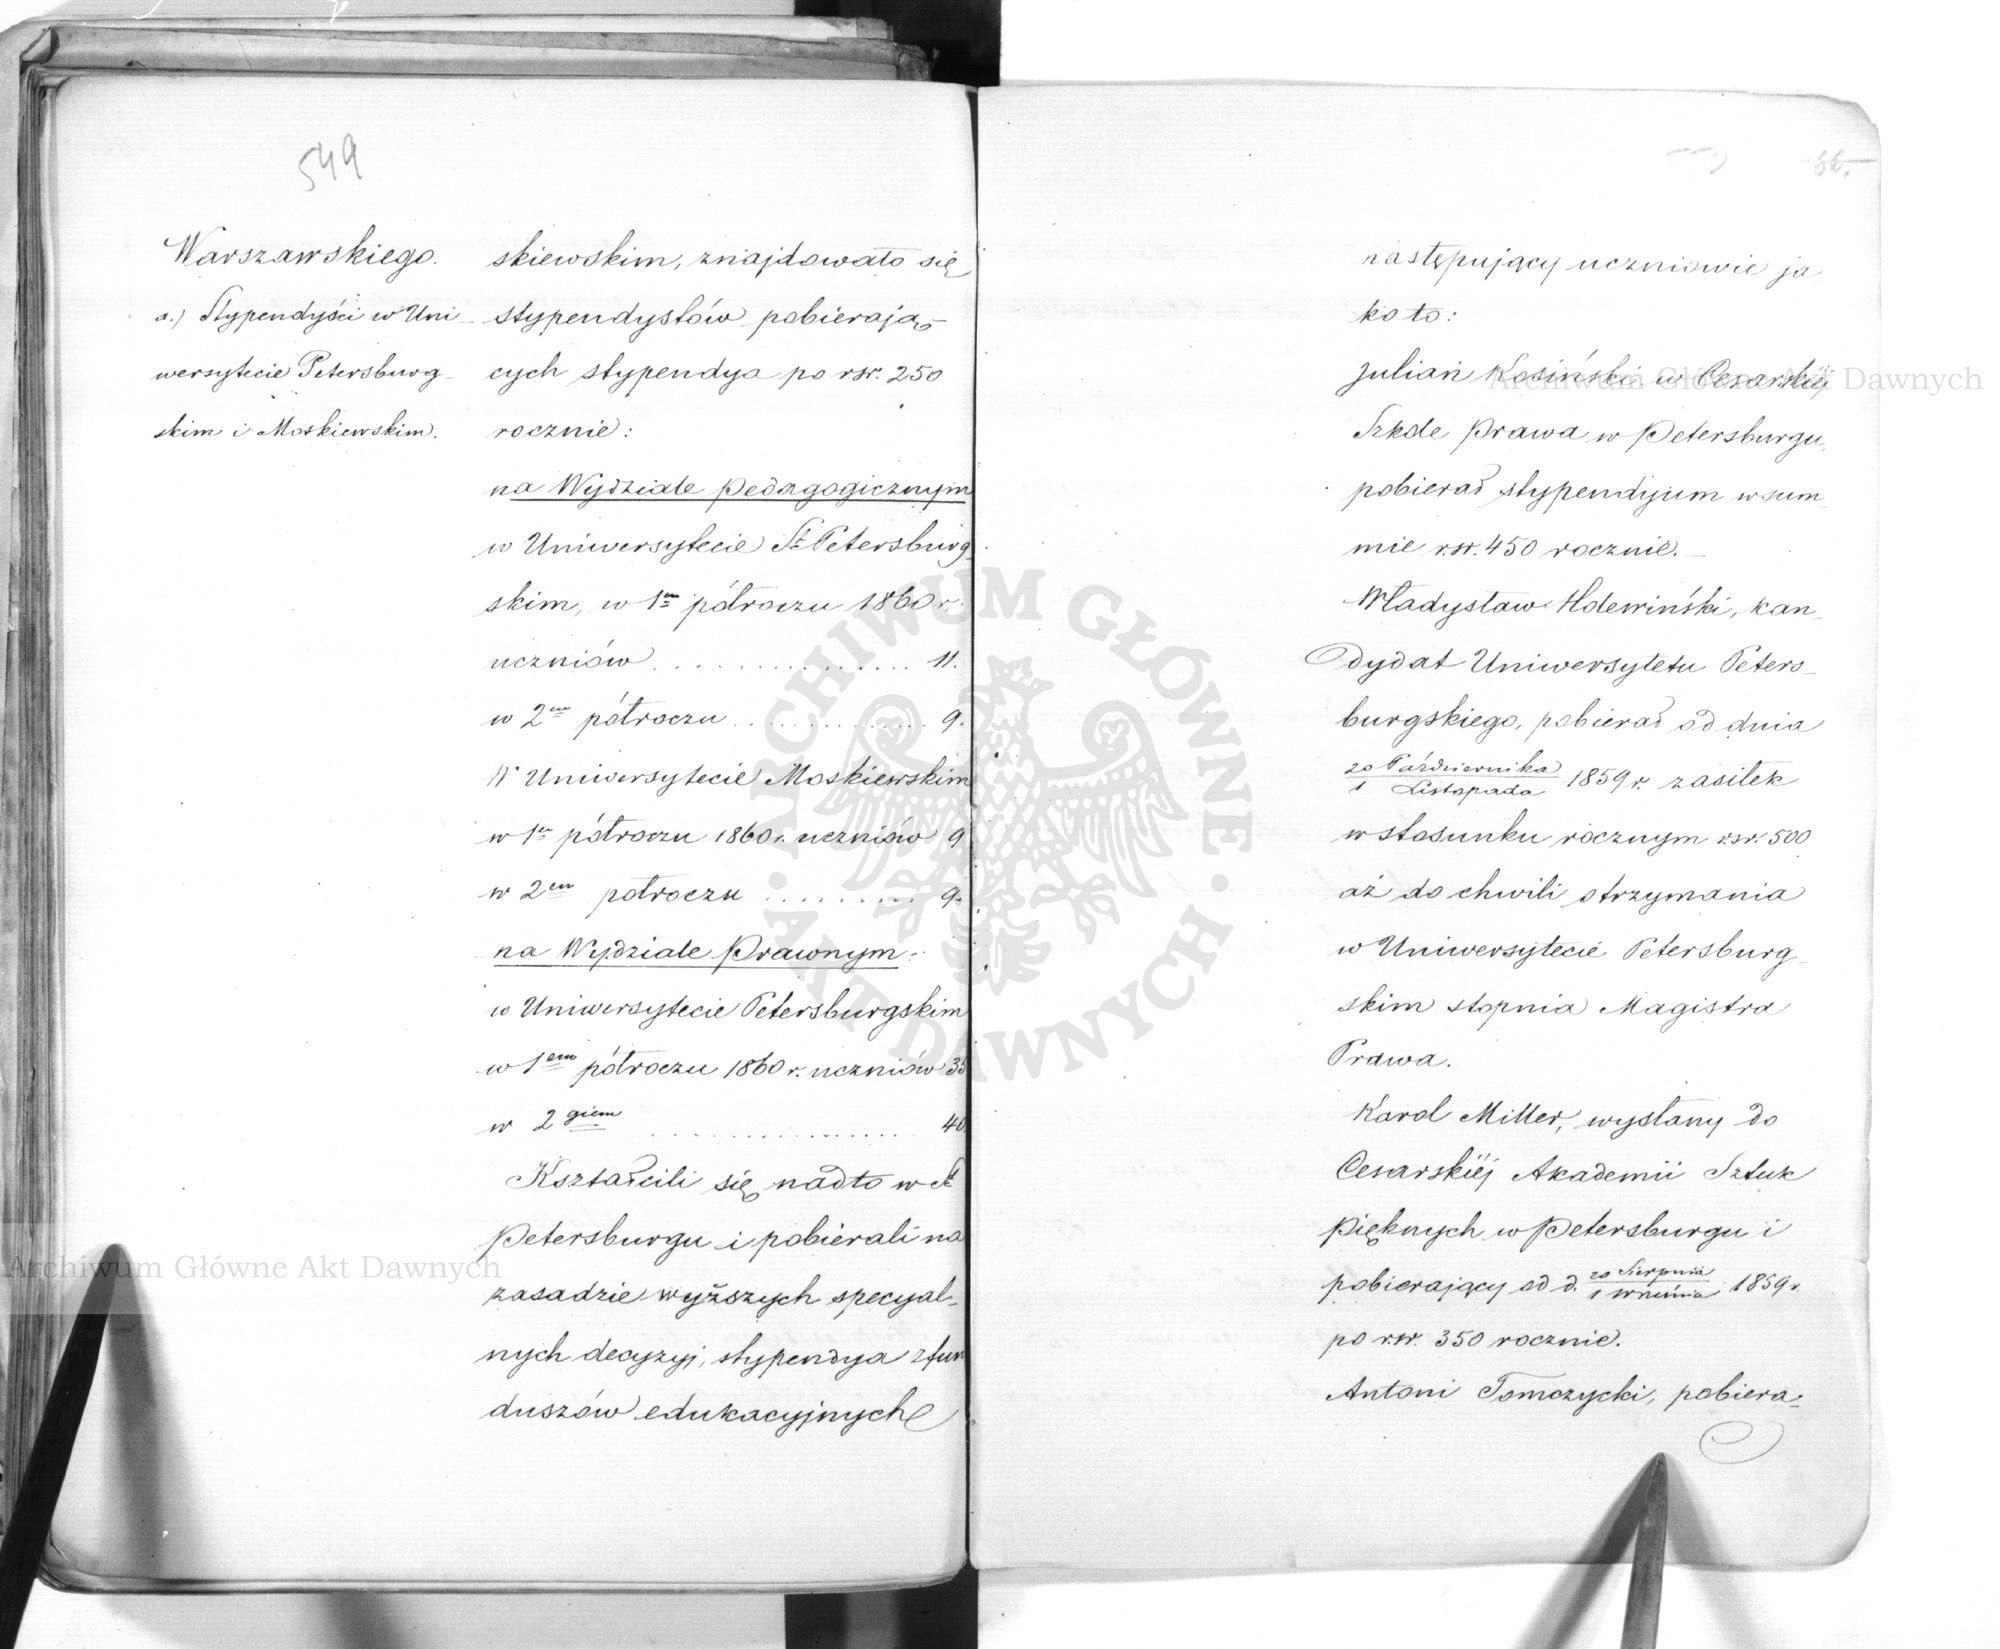 549
Warszawskiego.
a.) Stypendyści w Uni-
wersytecie Petersburg-
skim i Moskiewskim.
skiewskim, znajdowało się
stypendystów pobierają-
cych stypendya po rsr. 250
rocznie:
na Wydziale Pedagogicznym
w Uniwersytecie St Petersburg
skim, w 1em półroczu 1860 r.
uczniów ............... 11.
w 2em półroczu ............... 9.
W Uniwersytecie Moskiewskim
w 1em półroczu 1860 r. uczniów 9
w 2em półroczu ......... 9.
na Wydziale Prawnym:
w Uniwersytecie Petersburgskim
w 1em półroczu 1860 r. uczniów 35
w 2giem ............... 40.
Kształcili się nadto w St
Petersburgu i pobierali na
zasadzie wyższych specyal-
nych decyzyj, stypendya z fun
duszów edukacyjnych
56.
następujący uczniowie ja
ko to:
Julian Kosiński w Cesarskiéj
Szkole Prawa w Petersburgu,
pobierał stypendijum w sum-
mie rsr. 450 rocznie.
Władysław Holewiński, kan-
dydat Uniwersytetu Peters-
burgskiego, pobierał od dnia
20 Października / 1 Listopada 1859 r. zasiłek
w stosunku rocznym rsr. 500
aż do chwili otrzymania
w Uniwersytecie Petersburg-
skim stopnia Magistra
Prawa.
Karol Miller, wysłany do
Cesarskiéj Akademii Sztuk
Pięknych w Petersburgu i
pobierający od d. 20 Sierpnia / 1 Września 1859 r.
po rsr. 350 rocznie.
Antoni Tomczycki, pobiera-
Archiwum Główne Akt Dawnych
Archiwum Główne Akt Dawnych
ARCHIWUM GŁÓWNE · AKT DAWNYCH ·